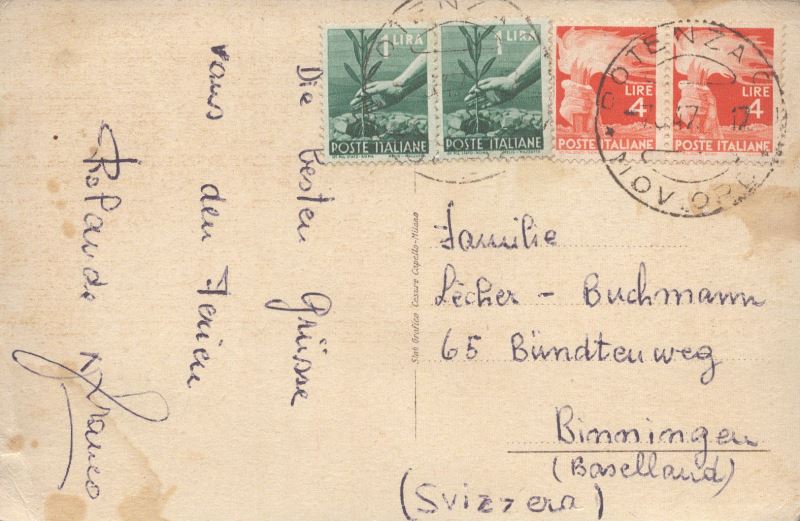 1 LIRA
POSTE ITALIANE
1 LIRA
POSTE ITALIANE
LIRE
4
POSTE ITALIANE
LIRE
4
POSTE ITALIANE
POTENZA
47 17
MOV.
Die besten Grüsse
aus den Ferien
Rolando
Franco
Stab Grafico Cesare Capello-Milano
Familie
Lècher - Buchmann
65 Bündtenweg
Binningen
(Baselland)
(Svizzera)